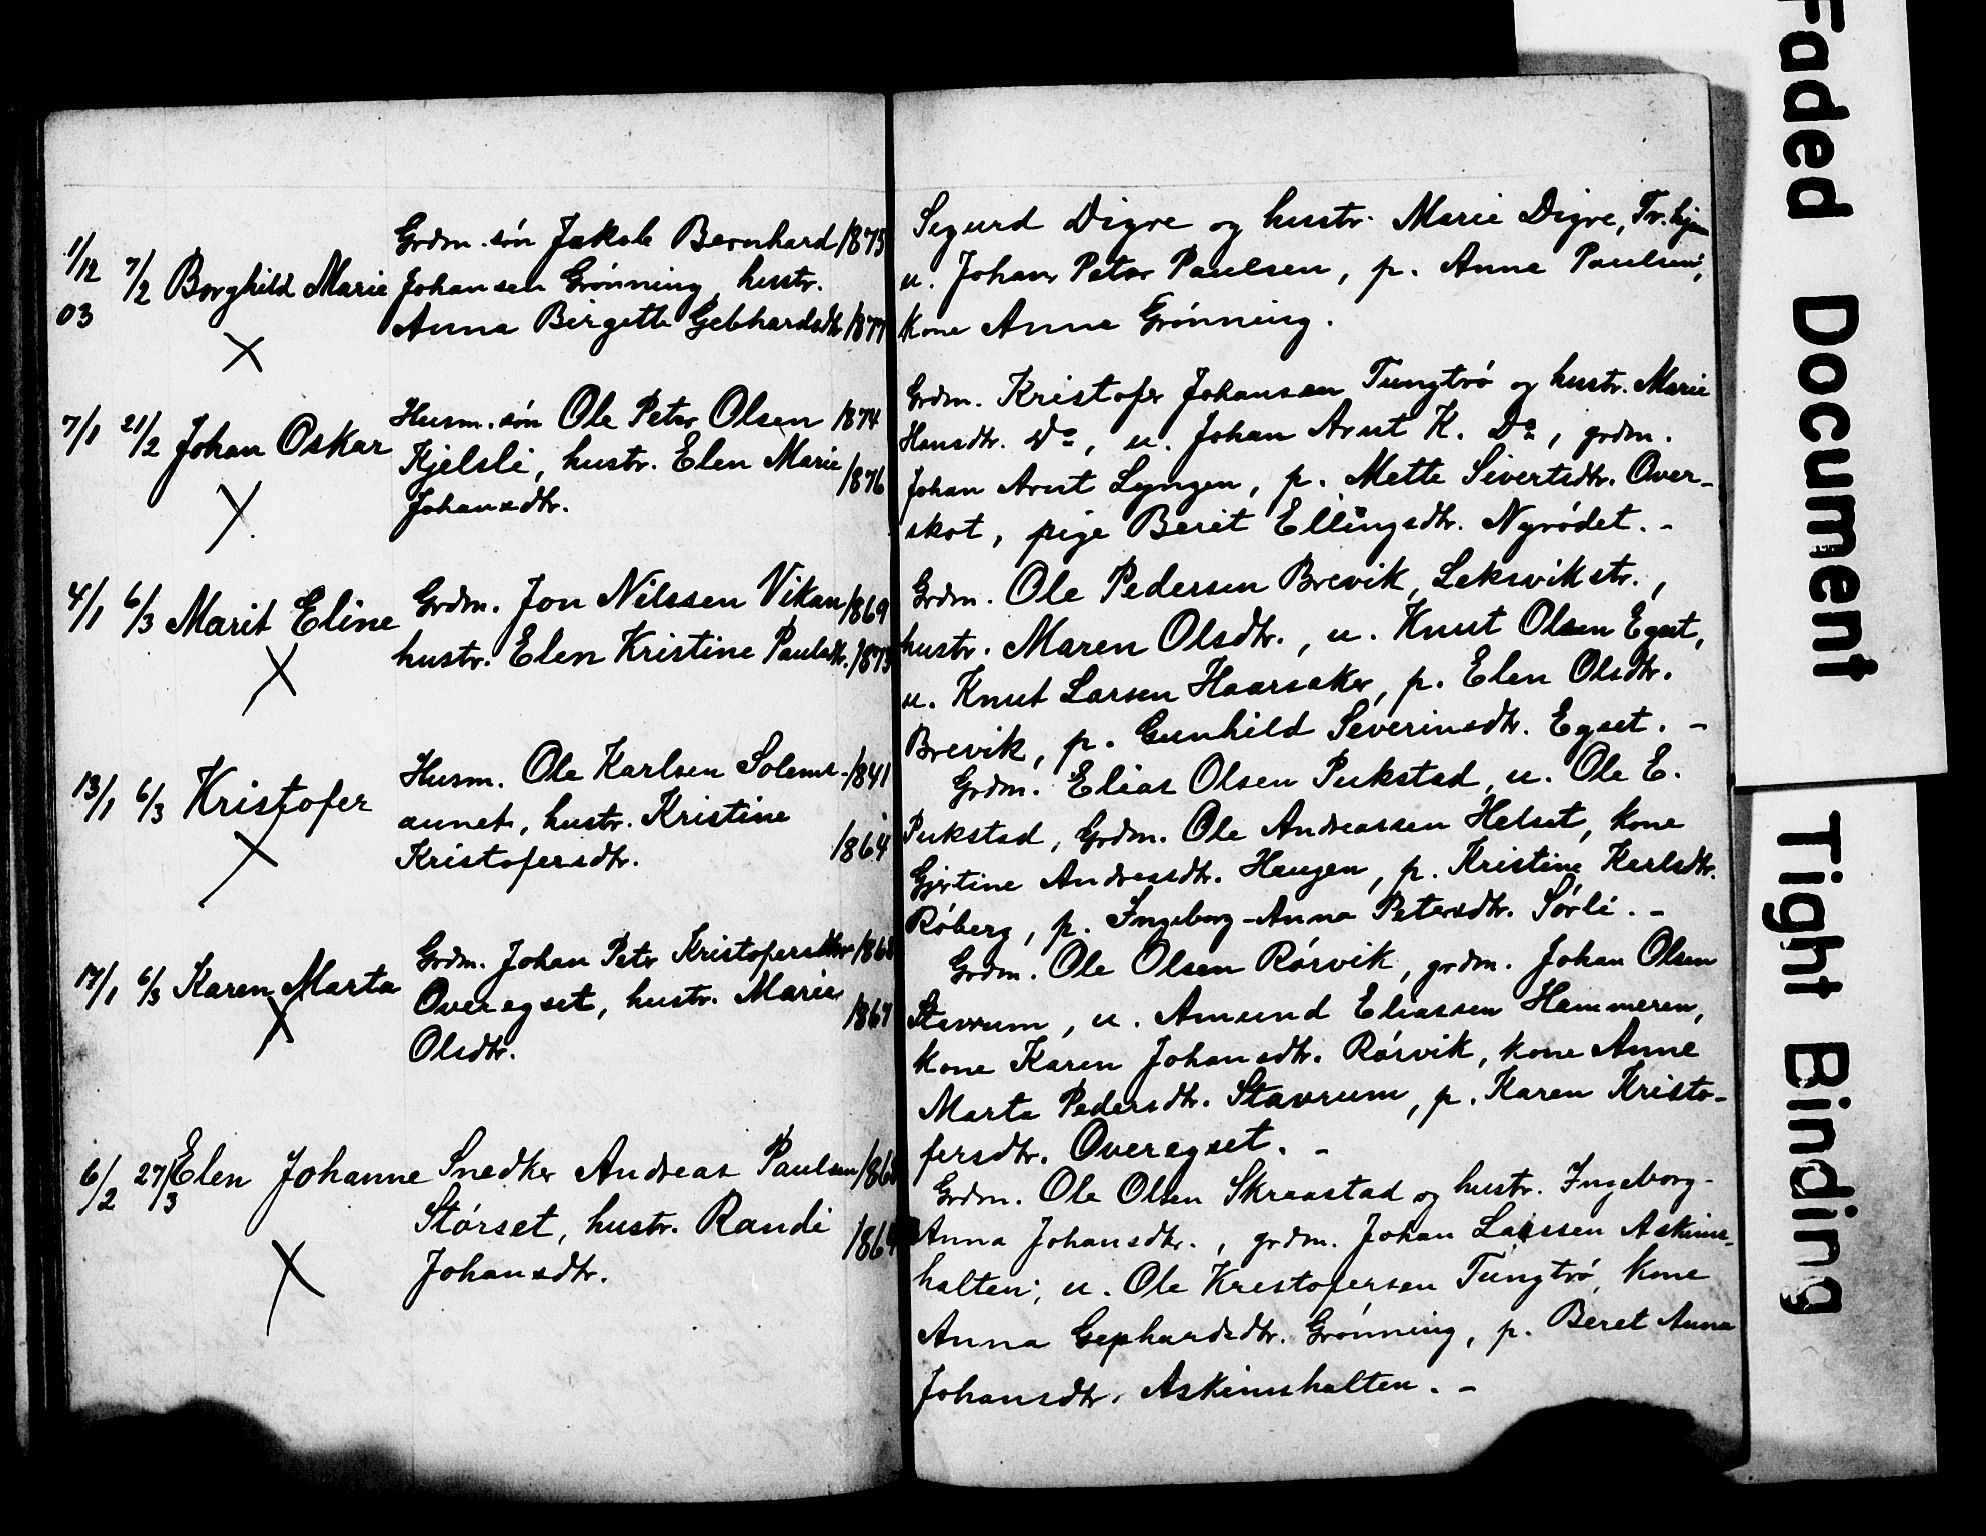 1/12 03 7/2 Borghild Marie
Grdm. søn Jakob Bernhard 1875
Johansen Grønning, hustr.
Anna Birgitte Gebhardsdtr. 1877
7/1 21/2 Johan Oskar
Husm. søn Ole Peter Olsen 1874
Kjelsli, hustr. Elen Marie 1876
Johansdtr.
4/1 6/3 Marit Eline
Grdm. Jon Nilssen Vikan 1869
hustr. Elen Kristine Paulsdtr. 1873
13/1 6/3 Kristofer
Husm. Ole Karlsen Solems- 1841
aunet, hustr. Kristine
Kristofersdtr. 1864
17/1 6/3 Karen Marta
Grdm. Johan Petr Kristofersen 1868
Overegset, hustr. Marie 1867
Olsdtr.
6/2 27/3 Elen Johanne
Snedker Andreas Paulsen 186
Størset, hustr. Randi 186
Johansdtr.
Sigurd Digre og hustr. Marie Digre, Tr.hjem
u. Johan Peter Paulsen, p. Anna Paulsen,
kone Anne Grønning.
Grdm. Kristofer Johansen Tungtrø og hustr. Marie
Hansdtr. Do, u. Johan Arnt K. Do, grdm.
Johan Arnt Lyngen, p. Mette Sivertsdtr. Over-
skot, pige Berit Ellingsdtr. Nyrødet. -
Grdm. Ole Pedersen Brevik, Leksvikstr.,
hustr. Maren Olsdtr., u. Knut Olsen Egset,
u. Knut Larsen Haarsaker, p. Elen Olsdtr.
Brevik, p. Gunhild Severinsdtr. Egset. -
Grdm. Elias Olsen Pukstad, u. Ole E.
Pukstad, Grdm. Ole Andreassen Helset, kone
Gjertine Andreasdtr. Haugen, p. Kristine Karlsdtr.
Røberg, p. Ingeborg-Anna Petersdtr. Sørli. -
Grdm. Ole Olsen Rørvik, grdm. Johan Olsen
Stavrum, u. Amund Eliassen Hammeren,
kone Karen Johansdtr. Rørvik, kone Anne
Marta Pedersdtr. Stavrum, p. Karen Kristo-
fersdtr. Overegset. -
Grdm. Ole Olsen Skraastad og hustr. Ingeborg-
Anna Johansdtr., grdm. Johan Larssen Askims-
halten, u. Ole Kristofersen Tungtrø, kone
Anna Gephardsdtr. Grønning, p. Beret Anna
Johansdtr. Askimshalten. -
Faded Document
Tight Binding